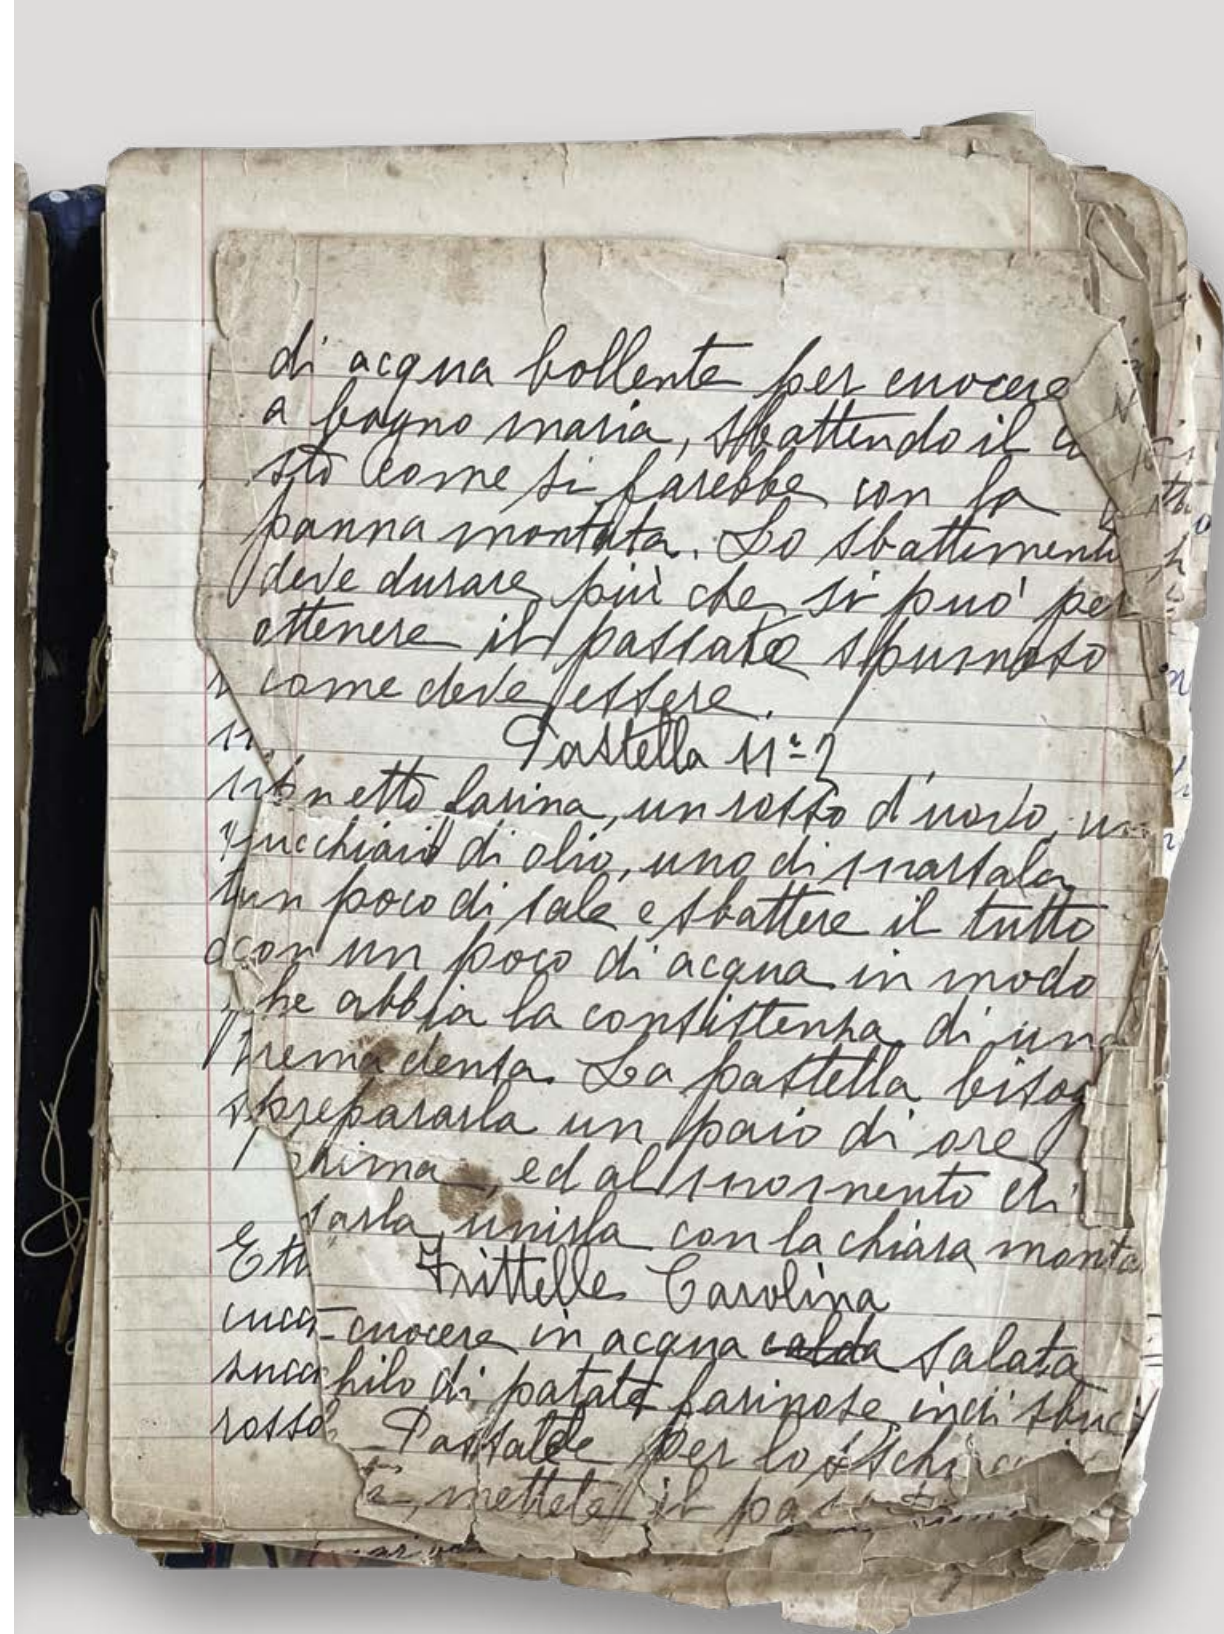 di acqua bollente per cuocere
a bagno maria, sbattendo il
sto come si farebbe con la
panna montata. Lo sbattiment
deve durare più che si può per
ottenere il passato spumoso
come deve essere.
Pastella N° 2
n etto farina, un rosso d'uovo, un
cucchiaio di olio, uno di marsala
un poco di sale e sbattere il tutto
con un poco di acqua in modo
he abbia la consistenza di una
rema densa. La pastella bisog
prepararla un paio di ore
rima, ed al momento di
sarla unirla con la chiara monta
Frittelle Carolina
cuocere in acqua calda salata
hilo di patate farinose, indi sbuc
Passatele per lo schi
mettete il pa
Ett
rosso